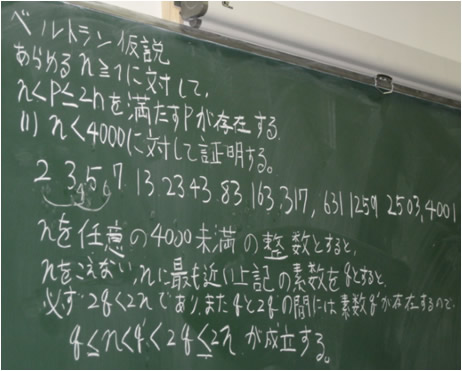 ベルトラン仮説
あらゆるn≧1に対して,
n<P≦2nを満たすPが存在する.
(1) n<4000に対して証明する。
2 3,5 7 13.23 43.83 163.317, 631 1259 2503,4001
4 6
nを任意の4000未満の整数とすると,
nをこえない,nに最も近い上記の素数をqとすると.
必ず2q<2nであり,またqと2qの間には素数q'が存在するので
q≦n<q'<2q≦2n が成立する。